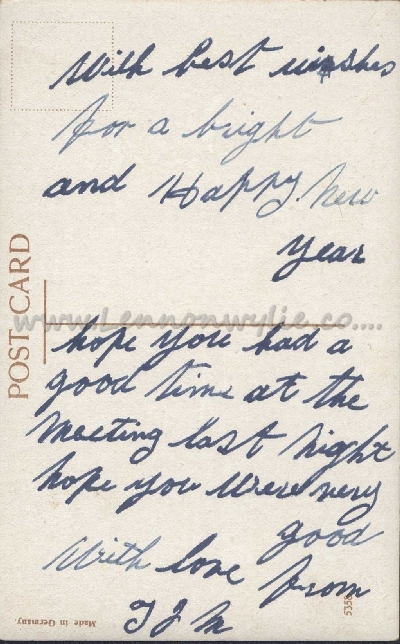 With best wishes
for a bright
and Happy New
year
POST CARD
www.Lennonwylie.co....
hope you had a
good time at the
Meeting last night
hope you were very
good
With love from
T J M
Made in Germany.
5356